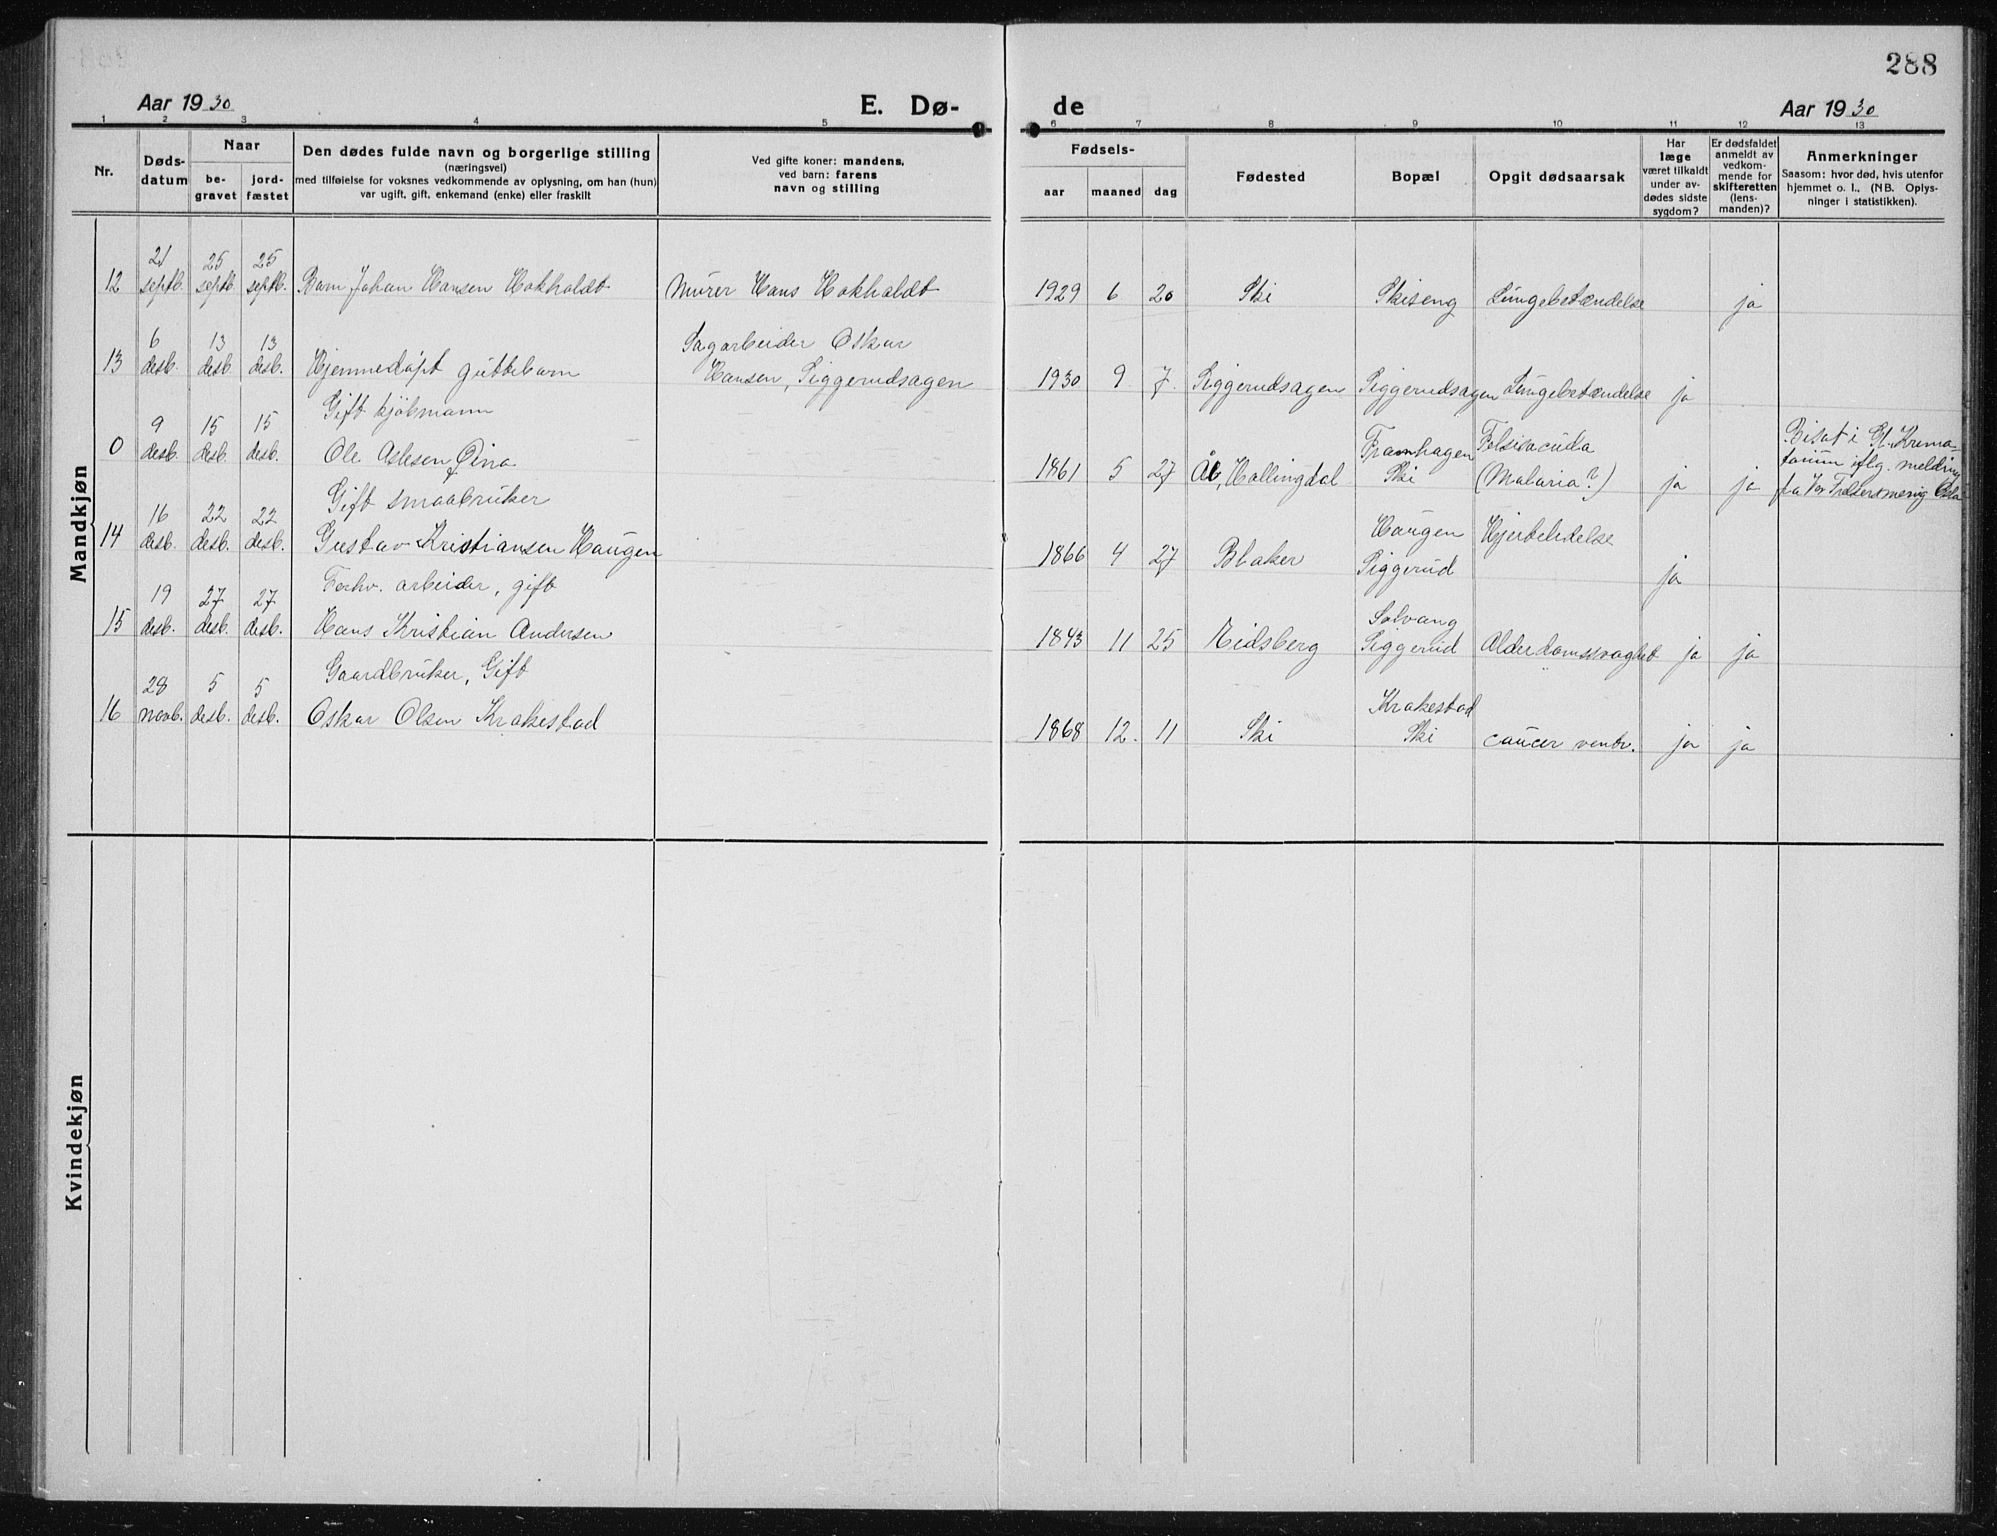 288
Aar 1930
E. Dø-
de
Aar 1930
1 2 3 4 5 6 7 8 9 10 11 12 13
Nr.
Døds-
datum
Naar
be-
gravet
jord-
fæstet
Den dødes fulde navn og borgerlige stilling
(næringsvei)
med tilføielse for voksnes vedkommende av oplysning, om han (hun)
var ugift, gift, enkemand (enke) eller fraskilt
Ved gifte koner: mandens,
ved barn: farens
navn og stilling
Fødsels-
aar maaned dag
Fødested
Bopæl
Opgit dødsaarsak
Har
læge
været tilkaldt
under av-
dødes sidste
sygdom?
Er dødsfaldet
anmeldt av
vedkom-
mende for
skifteretten
(lens-
manden)?
Anmerkninger
Saasom: hvor død, hvis utenfor
hjemmet o. l., (NB. Oplys-
ninger i statistikken).
Mandkjøn
21 25 25
12 septb. septb. septb. Barn Johan Hansen Hokholdt Murer Hans Hokholdt 1929 6 20 Ski Skiseng Lungebetændelse ja
6 13 13 Sagarbeider Oskar
13 desb. desb. desb. Hjemmedøpt guttebarn Hansen, Siggerudsagen 1930 9 7 Siggerudsagen Siggerudsagen Lungebetændelse ja
9 15 15 Gift kjøbmann Framhagen Bisat i Gl. Krema-
0 desb. desb. desb. Ole Aslesen 1861 5 27 Ål, Hallingdal Ski (Malaria?) ja ja torium iflg. melding
fra
16 22 22 Gift smaabruker Haugen
14 desb. desb. desb. Gustav Kristiansen Haugen 1866 4 27 Blaker Siggerud Hjertelidelse ja
19 27 27 Forhv. arbeider, gift Solvang
15 desb. desb. desb. Hans Kristian Andersen 1843 11 25 Eidsberg Siggerud Alderdomssvaghet ja ja
28 5 5 Gaardbruker, Gift Krakestad
16 novb. desb. desb. Oskar Olsen Krakestad 1868 12. 11 Ski Ski cancer ventr. ja ja
Kvindekjøn